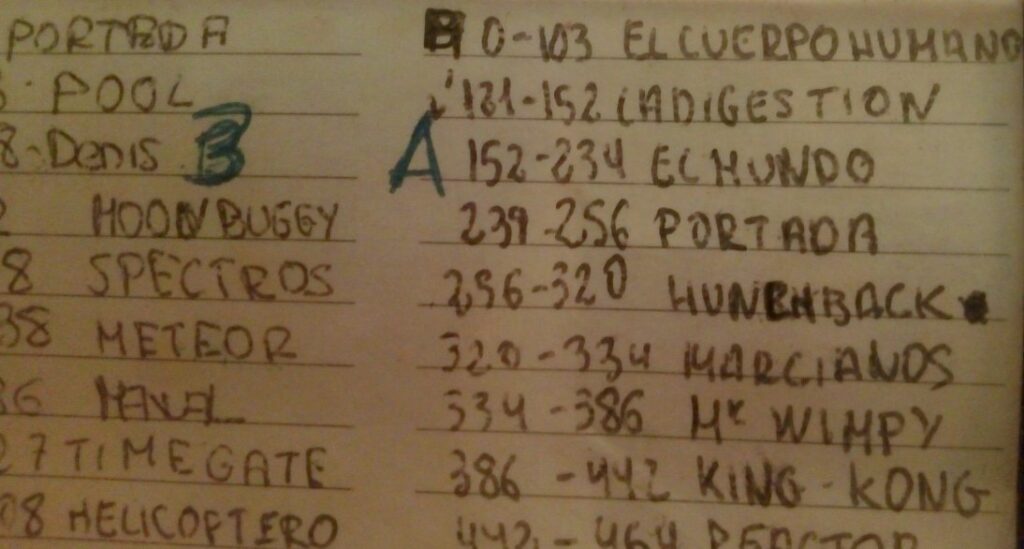 PORTADA
POOL
8-Denis B
MOONBUGGY
8 SPECTROS
38 METEOR
36
27 TIME GATE
08 HELICOPTERO
0-103 EL CUERPO HUMANO
121-152 LA DIGESTION
A 152-234 EL MUNDO
239-256 PORTADA
256-320 HUNCHBACK
320-334 MARCIANOS
334-386 Mr WIMPY
386-442 KING-KONG
442-464 REACTOR